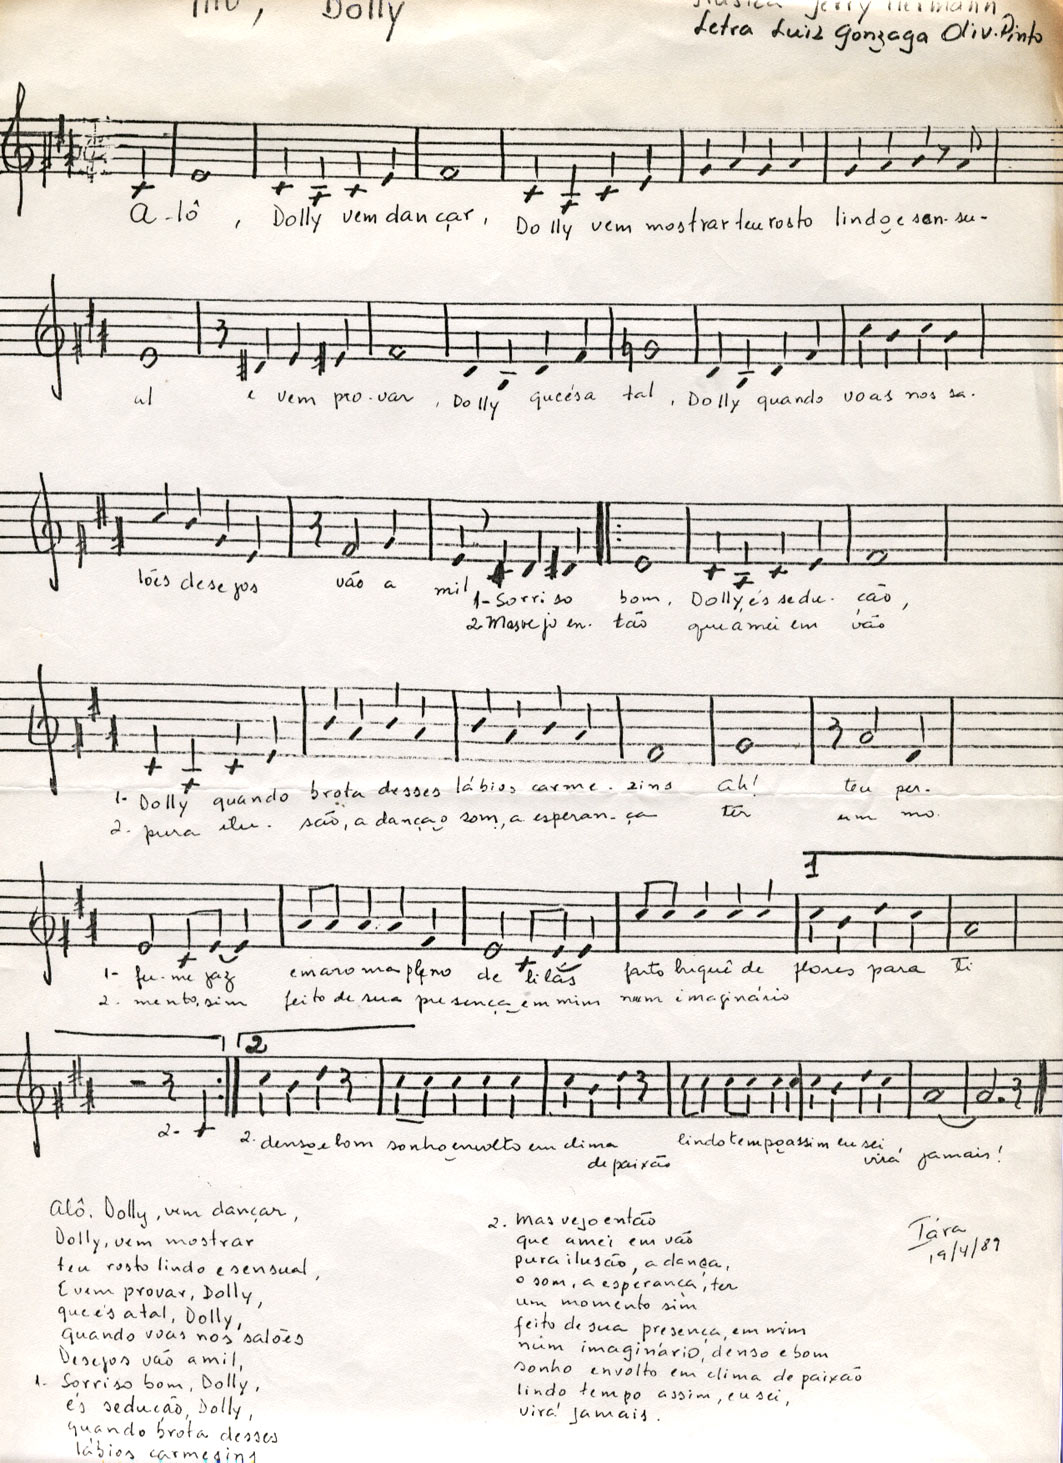 Dolly
Música Jerry Hermann
Letra Luiz Gonzaga Oliv. Pinto
A-lô, Dolly vem dançar, Dolly vem mostrar teu rosto lindo e sen-su-
al e vem pro-var, Dolly que és a tal, Dolly quando voas nos sa-
lões desejos vão a mil 1- Sorriso bom, Dolly, és sedu- ção,
2- Mas vejo en- tão que amei em vão
1- Dolly quando brota desses lábios carme-zins ah! teu per-
2- pura ilu- são, a dança o som, a esperan-ça ter um mo-
1
1- fu-me faz em aroma pleno de lilás farto buquê de flores para ti
2- mento, sim feito de sua presença em mim num imaginário
2
2-
2- denso e bom sonho envolto em clima lindo tempo assim eu sei,
de paixão virá jamais!
Alô, Dolly, vem dançar,
Dolly, vem mostrar
teu rosto lindo e sensual,
E vem provar, Dolly,
que és a tal, Dolly,
quando voas nos salões
Desejos vão a mil,
1- Sorriso bom, Dolly,
és sedução, Dolly,
quando brota desses
lábios carmesins
2. Mas vejo então
que amei em vão
pura ilusão, a dança,
o som, a esperança, ter
um momento sim
feito de sua presença, em mim
num imaginário, denso e bom
sonho envolto em clima de paixão
lindo tempo assim, eu sei,
virá jamais.
Tára
19/4/89